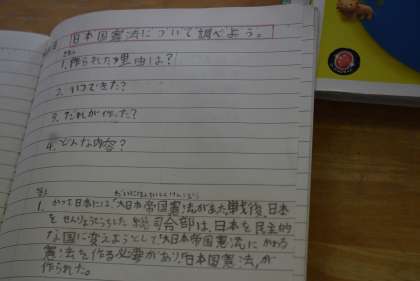 日本国憲法について調べよう。
1. 作られた理由は?
2. いつできた?
3. だれが作った?
4. どんな内容?
1. かつて日本には「大日本帝国憲法」があった。戦後、日本
をせんりょうしようとした総司令部は、日本を民主的
な国に変えようとして「大日本帝国憲法」にかわる
憲法を作る必要があり「日本国憲法」が
作られた。